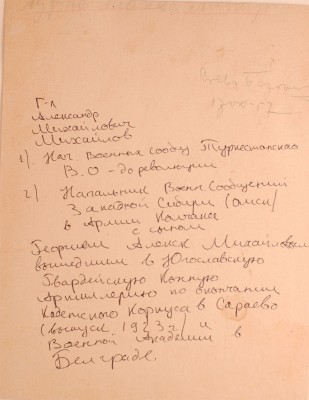 Г-л
Александр
Михайлович
Михайлов
1) Нач Военных сообщ Туркестанского
В.О - до революции
2) Начальник Военн Сообщений
Западной Сибири (Омск)
в Армии Колчака
с сыном
Георгием Алекс Михайловым
вышедшим в Югославскую
Гвардейскую Конную
Артиллерию по окончании
Кадетского Корпуса в Сараево
(выпуск 1923 г/ и
Военной Академии в
Белграде.